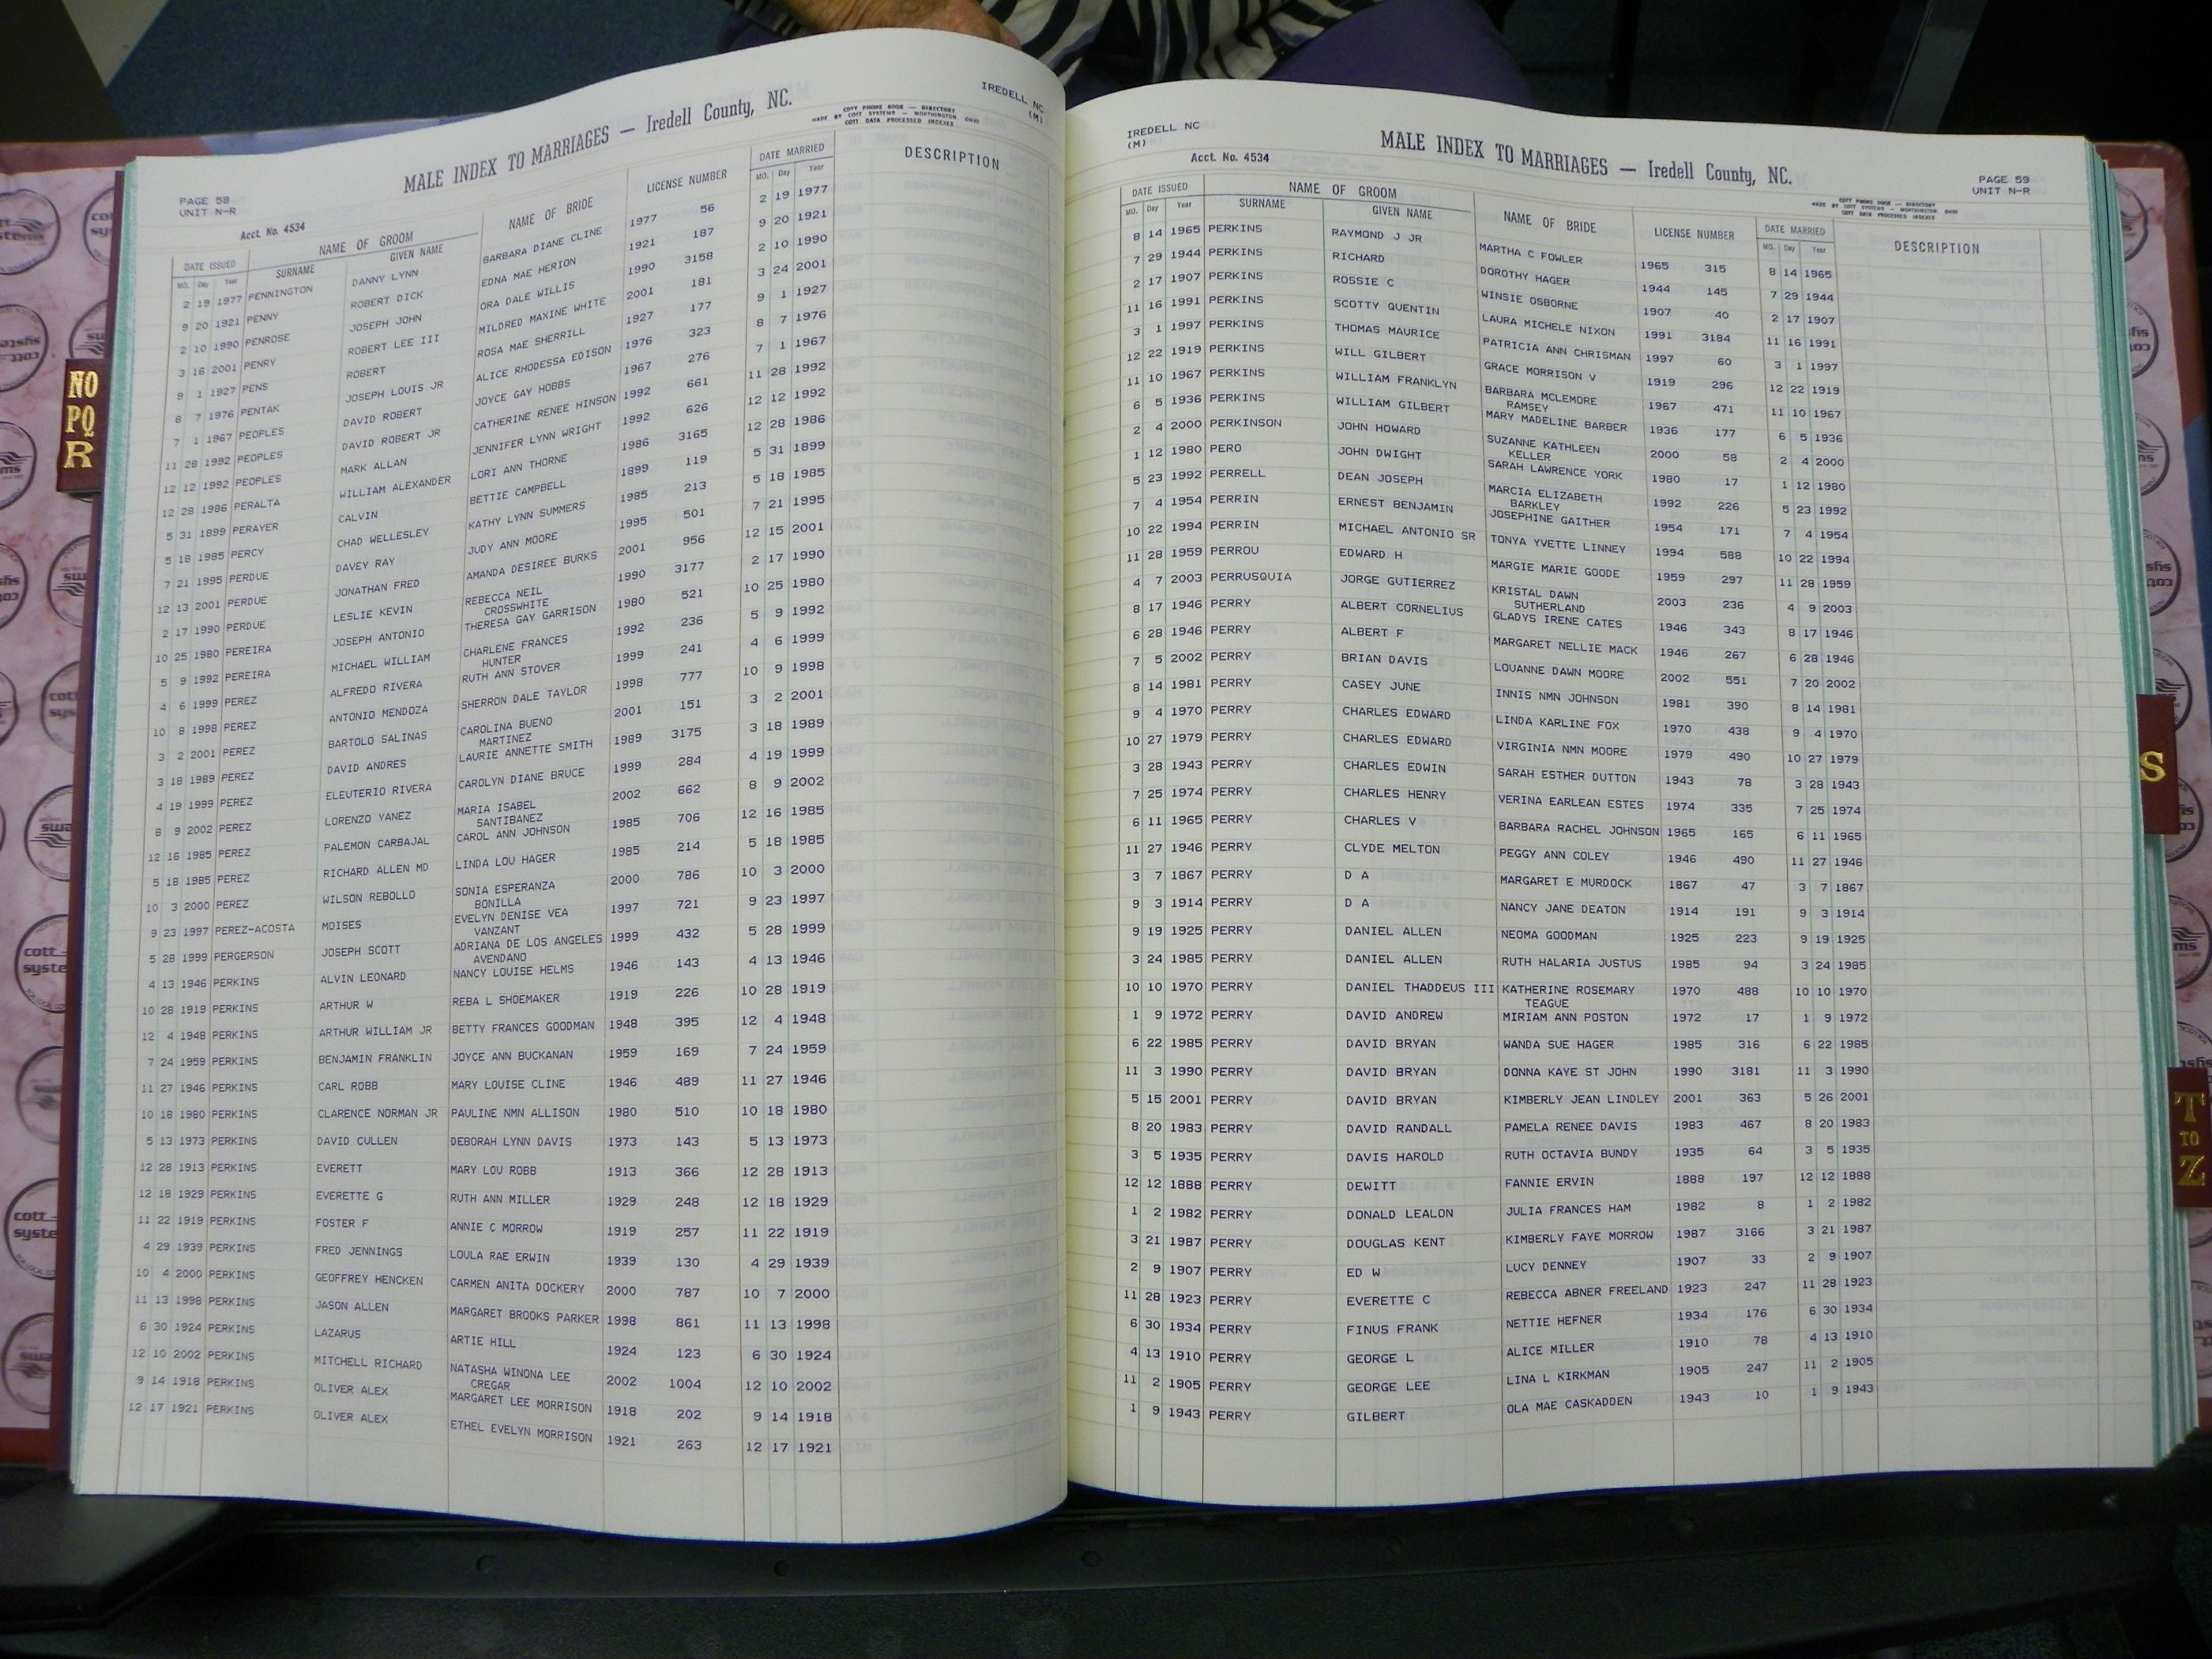 PAGE 58
UNIT N-R
MALE INDEX TO MARRIAGES — Iredell County, NC.
COTT PHONE BOOK — DIRECTORY
MADE BY COTT SYSTEMS — WORTHINGTON OHIO
COTT DATA PROCESSED INDEXES
IREDELL NC
(M)
Acct. No. 4534
DATE ISSUED NAME OF GROOM NAME OF BRIDE LICENSE NUMBER DATE MARRIED DESCRIPTION
MO. Day Year SURNAME GIVEN NAME MO. Day Year
2 19 1977 PENNINGTON DANNY LYNN BARBARA DIANE CLINE 1977 56 2 19 1977
9 20 1921 PENNY ROBERT DICK EDNA MAE HERION 1921 187 9 20 1921
2 10 1990 PENROSE JOSEPH JOHN ORA DALE WILLIS 1990 3158 2 10 1990
3 16 2001 PENRY ROBERT LEE III MILDRED MAXINE WHITE 2001 181 3 24 2001
9 1 1927 PENS ROBERT ROSA MAE SHERRILL 1927 177 9 1 1927
8 7 1976 PENTAK JOSEPH LOUIS JR ALICE RHODESSA EDISON 1976 323 8 7 1976
7 1 1967 PEOPLES DAVID ROBERT JOYCE GAY HOBBS 1967 276 7 1 1967
11 28 1992 PEOPLES DAVID ROBERT JR CATHERINE RENEE HINSON 1992 661 11 28 1992
12 12 1992 PEOPLES MARK ALLAN JENNIFER LYNN WRIGHT 1992 626 12 12 1992
12 28 1986 PERALTA WILLIAM ALEXANDER LORI ANN THORNE 1986 3165 12 28 1986
5 31 1899 PERAYER CALVIN BETTIE CAMPBELL 1899 119 5 31 1899
5 18 1985 PERCY CHAD WELLESLEY KATHY LYNN SUMMERS 1985 213 5 18 1985
7 21 1995 PERDUE DAVEY RAY JUDY ANN MOORE 1995 501 7 21 1995
12 13 2001 PERDUE JONATHAN FRED AMANDA DESIREE BURKS 2001 956 12 15 2001
2 17 1990 PERDUE LESLIE KEVIN REBECCA NEIL 1990 3177 2 17 1990
CROSSWHITE
10 25 1980 PEREIRA JOSEPH ANTONIO THERESA GAY GARRISON 1980 521 10 25 1980
5 9 1992 PEREIRA MICHAEL WILLIAM CHARLENE FRANCES 1992 236 5 9 1992
HUNTER
4 6 1999 PEREZ ALFREDO RIVERA RUTH ANN STOVER 1999 241 4 6 1999
10 8 1998 PEREZ ANTONIO MENDOZA SHERRON DALE TAYLOR 1998 777 10 9 1998
3 2 2001 PEREZ BARTOLO SALINAS CAROLINA BUENO 2001 151 3 2 2001
MARTINEZ
3 18 1989 PEREZ DAVID ANDRES LAURIE ANNETTE SMITH 1989 3175 3 18 1989
4 19 1999 PEREZ ELEUTERIO RIVERA CAROLYN DIANE BRUCE 1999 284 4 19 1999
8 9 2002 PEREZ LORENZO YANEZ MARIA ISABEL 2002 662 8 9 2002
SANTIBANEZ
12 16 1985 PEREZ PALEMON CARBAJAL CAROL ANN JOHNSON 1985 706 12 16 1985
5 18 1985 PEREZ RICHARD ALLEN MD LINDA LOU HAGER 1985 214 5 18 1985
10 3 2000 PEREZ WILSON REBOLLO SONIA ESPERANZA 2000 786 10 3 2000
BONILLA
9 23 1997 PEREZ-ACOSTA MOISES EVELYN DENISE VEA 1997 721 9 23 1997
VANZANT
5 28 1999 PERGERSON JOSEPH SCOTT ADRIANA DE LOS ANGELES 1999 432 5 28 1999
AVENDANO
4 13 1946 PERKINS ALVIN LEONARD NANCY LOUISE HELMS 1946 143 4 13 1946
10 28 1919 PERKINS ARTHUR W REBA L SHOEMAKER 1919 226 10 28 1919
12 4 1948 PERKINS ARTHUR WILLIAM JR BETTY FRANCES GOODMAN 1948 395 12 4 1948
7 24 1959 PERKINS BENJAMIN FRANKLIN JOYCE ANN BUCKANAN 1959 169 7 24 1959
11 27 1946 PERKINS CARL ROBB MARY LOUISE CLINE 1946 489 11 27 1946
10 18 1980 PERKINS CLARENCE NORMAN JR PAULINE NMN ALLISON 1980 510 10 18 1980
5 13 1973 PERKINS DAVID CULLEN DEBORAH LYNN DAVIS 1973 143 5 13 1973
12 28 1913 PERKINS EVERETT MARY LOU ROBB 1913 366 12 28 1913
12 18 1929 PERKINS EVERETTE G RUTH ANN MILLER 1929 248 12 18 1929
11 22 1919 PERKINS FOSTER F ANNIE C MORROW 1919 257 11 22 1919
4 29 1939 PERKINS FRED JENNINGS LOULA RAE ERWIN 1939 130 4 29 1939
10 4 2000 PERKINS GEOFFREY HENCKEN CARMEN ANITA DOCKERY 2000 787 10 7 2000
11 13 1998 PERKINS JASON ALLEN MARGARET BROOKS PARKER 1998 861 11 13 1998
6 30 1924 PERKINS LAZARUS ARTIE HILL 1924 123 6 30 1924
12 10 2002 PERKINS MITCHELL RICHARD NATASHA WINONA LEE 2002 1004 12 10 2002
CREGAR
9 14 1918 PERKINS OLIVER ALEX MARGARET LEE MORRISON 1918 202 9 14 1918
12 17 1921 PERKINS OLIVER ALEX ETHEL EVELYN MORRISON 1921 263 12 17 1921
IREDELL NC
(M)
Acct. No. 4534
MALE INDEX TO MARRIAGES — Iredell County, NC.
PAGE 59
UNIT N-R
COTT PHONE BOOK — DIRECTORY
MADE BY COTT SYSTEMS — WORTHINGTON OHIO
COTT DATA PROCESSED INDEXES
DATE ISSUED NAME OF GROOM NAME OF BRIDE LICENSE NUMBER DATE MARRIED DESCRIPTION
MO. Day Year SURNAME GIVEN NAME MO. Day Year
8 14 1965 PERKINS RAYMOND J JR MARTHA C FOWLER 1965 315 8 14 1965
7 29 1944 PERKINS RICHARD DOROTHY HAGER 1944 145 7 29 1944
2 17 1907 PERKINS ROSSIE C WINSIE OSBORNE 1907 40 2 17 1907
11 16 1991 PERKINS SCOTTY QUENTIN LAURA MICHELE NIXON 1991 3184 11 16 1991
3 1 1997 PERKINS THOMAS MAURICE PATRICIA ANN CHRISMAN 1997 60 3 1 1997
12 22 1919 PERKINS WILL GILBERT GRACE MORRISON V 1919 296 12 22 1919
11 10 1967 PERKINS WILLIAM FRANKLYN BARBARA MCLEMORE 1967 471 11 10 1967
RAMSEY
6 5 1936 PERKINS WILLIAM GILBERT MARY MADELINE BARBER 1936 177 6 5 1936
2 4 2000 PERKINSON JOHN HOWARD SUZANNE KATHLEEN 2000 58 2 4 2000
KELLER
1 12 1980 PERO JOHN DWIGHT SARAH LAWRENCE YORK 1980 17 1 12 1980
5 23 1992 PERRELL DEAN JOSEPH MARCIA ELIZABETH 1992 226 5 23 1992
BARKLEY
7 4 1954 PERRIN ERNEST BENJAMIN JOSEPHINE GAITHER 1954 171 7 4 1954
10 22 1994 PERRIN MICHAEL ANTONIO SR TONYA YVETTE LINNEY 1994 588 10 22 1994
11 28 1959 PERROU EDWARD H MARGIE MARIE GOODE 1959 297 11 28 1959
4 7 2003 PERRUSQUIA JORGE GUTIERREZ KRISTAL DAWN 2003 236 4 9 2003
SUTHERLAND
8 17 1946 PERRY ALBERT CORNELIUS GLADYS IRENE CATES 1946 343 8 17 1946
6 28 1946 PERRY ALBERT F MARGARET NELLIE MACK 1946 267 6 28 1946
7 5 2002 PERRY BRIAN DAVIS LOUANNE DAWN MOORE 2002 551 7 20 2002
8 14 1981 PERRY CASEY JUNE INNIS NMN JOHNSON 1981 390 8 14 1981
9 4 1970 PERRY CHARLES EDWARD LINDA KARLINE FOX 1970 438 9 4 1970
10 27 1979 PERRY CHARLES EDWARD VIRGINIA NMN MOORE 1979 490 10 27 1979
3 28 1943 PERRY CHARLES EDWIN SARAH ESTHER DUTTON 1943 78 3 28 1943
7 25 1974 PERRY CHARLES HENRY VERINA EARLEAN ESTES 1974 335 7 25 1974
6 11 1965 PERRY CHARLES V BARBARA RACHEL JOHNSON 1965 165 6 11 1965
11 27 1946 PERRY CLYDE MELTON PEGGY ANN COLEY 1946 490 11 27 1946
3 7 1867 PERRY D A MARGARET E MURDOCK 1867 47 3 7 1867
9 3 1914 PERRY D A NANCY JANE DEATON 1914 191 9 3 1914
9 19 1925 PERRY DANIEL ALLEN NEOMA GOODMAN 1925 223 9 19 1925
3 24 1985 PERRY DANIEL ALLEN RUTH HALARIA JUSTUS 1985 94 3 24 1985
10 10 1970 PERRY DANIEL THADDEUS III KATHERINE ROSEMARY 1970 488 10 10 1970
TEAGUE
1 9 1972 PERRY DAVID ANDREW MIRIAM ANN POSTON 1972 17 1 9 1972
6 22 1985 PERRY DAVID BRYAN WANDA SUE HAGER 1985 316 6 22 1985
11 3 1990 PERRY DAVID BRYAN DONNA KAYE ST JOHN 1990 3181 11 3 1990
5 15 2001 PERRY DAVID BRYAN KIMBERLY JEAN LINDLEY 2001 363 5 26 2001
8 20 1983 PERRY DAVID RANDALL PAMELA RENEE DAVIS 1983 467 8 20 1983
3 5 1935 PERRY DAVIS HAROLD RUTH OCTAVIA BUNDY 1935 64 3 5 1935
12 12 1888 PERRY DEWITT FANNIE ERVIN 1888 197 12 12 1888
1 2 1982 PERRY DONALD LEALON JULIA FRANCES HAM 1982 8 1 2 1982
3 21 1987 PERRY DOUGLAS KENT KIMBERLY FAYE MORROW 1987 3166 3 21 1987
2 9 1907 PERRY ED W LUCY DENNEY 1907 33 2 9 1907
11 28 1923 PERRY EVERETTE C REBECCA ABNER FREELAND 1923 247 11 28 1923
6 30 1934 PERRY FINUS FRANK NETTIE HEFNER 1934 176 6 30 1934
4 13 1910 PERRY GEORGE L ALICE MILLER 1910 78 4 13 1910
11 2 1905 PERRY GEORGE LEE LINA L KIRKMAN 1905 247 11 2 1905
1 9 1943 PERRY GILBERT OLA MAE CASKADDEN 1943 10 1 9 1943
NO
PQ
R
S
T
TO
Z